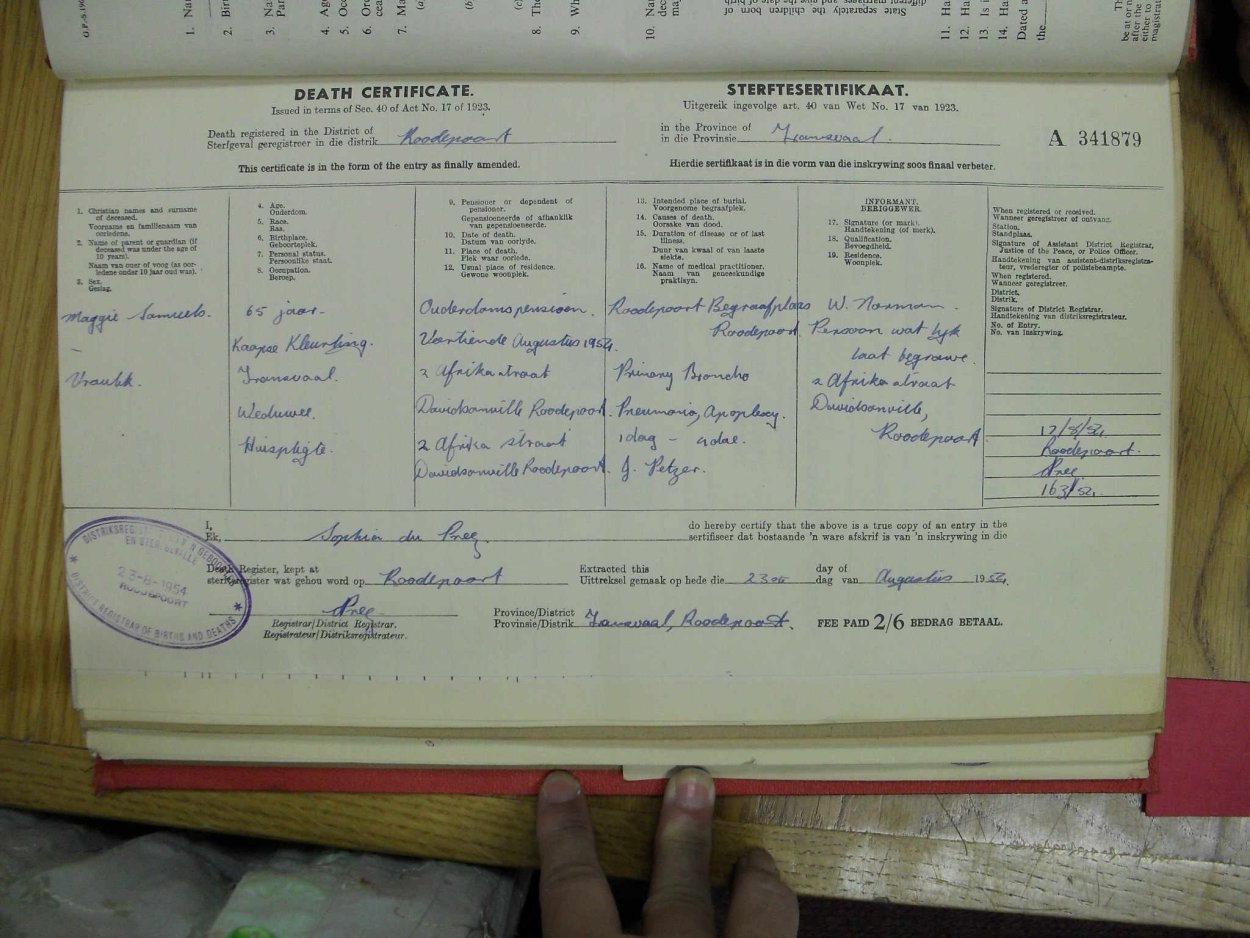 DEATH CERTIFICATE.
STERFTESERTIFIKAAT.
Issued in terms of Sec. 40 of Act No. 17 of 1923.
Uitgereik ingevolge art. 40 van Wet No. 17 van 1923.
Death registered in the District of
Sterfgeval geregistreer in die distrik
Roodepoort
in the Province of
in die Provinsie
Transvaal.
A 341879
This certificate is in the form of the entry as finally amended.
Hierdie sertifikaat is in die vorm van die inskrywing soos finaal verbeter.
1. Christian names and surname
of deceased.
Voorname en familienaam van
oorledene.
2. Name of parent or guardian (if
deceased was under the age of
10 years).
Naam van ouer of voog (as oor-
ledene onder 10 jaar oud was).
3. Sex.
Geslag.
4. Age.
Ouderdom.
5. Race.
Ras.
6. Birthplace.
Geboorteplek.
7. Personal status.
Persoonlike staat.
8. Occupation.
Beroep.
9. Pensioner or dependent of
pensioner.
Gepensioneerde of afhanklik
van gepensioneerde.
10. Date of death.
Datum van oorlyde.
11. Place of death.
Plek waar oorlede.
12. Usual place of residence.
Gewone woonplek.
13. Intended place of burial.
Voorgenome begraafplek.
14. Causes of death.
Oorsake van dood.
15. Duration of disease or of last
illness.
Duur van kwaal of van laaste
siekte.
16. Name of medical practitioner.
Naam van geneeskundige
praktisyn.
INFORMANT.
BERIGGEWER.
17. Signature (or mark).
Handtekening (of merk).
18. Qualification.
Bevoegdheid.
19. Residence.
Woonplek.
When registered or received.
Wanneer geregistreer of ontvang.
Station.
Standplaas.
Signature of Assistant District Registrar,
Justice of the Peace, or Police Officer.
Handtekening van assistent-distriksregistra-
teur, vrederegter of polisiebeampte.
When registered.
Wanneer geregistreer.
District.
Distrik.
Signature of District Registrar.
Handtekening van distriksregistrateur.
No. of Entry.
No. van inskrywing.
Maggie Samuels.
-
Vroulik.
65 jaar.
Kaapse Kleurling.
Transvaal.
Weduwee.
Huispligte.
Ouderdomspensioen.
Veertiende Augustus 1954.
2 Afrika straat
Davidsonville Roodepoort.
2 Afrika straat
Davidsonville Roodepoort.
Roodepoort Begraafplaas
Roodepoort
Primary Broncho
Pneumonia, Apoplexy.
1 dag - 4 dae.
J. Petzer.
W. Norman
Persoon wat lyk
laat begrawe.
2 Afrika straat
Davidsonville,
Roodepoort
Roodepoort.
Pree
163/54.
I,
Ek,
Sophia du Preez
do hereby certify that the above is a true copy of an entry in the
sertifiseer dat bostaande 'n ware afskrif is van 'n inskrywing in die
Death Register, kept at
sterfregister wat gehou word op
Roodepoort
Extracted this
Uittreksel gemaak op hede die
23ste
day of
dag van
Augustus
1954.
Pree
Registrar/District Registrar.
Registrateur/Distriksregistrateur.
Province/District
Provinsie/Distrik
Transvaal, Roodepoort.
FEE PAID 2/6 BEDRAG BETAAL.
23-8-1954
ROODEPOORT
DISTRICT REGISTRAR OF BIRTHS AND DEATHS